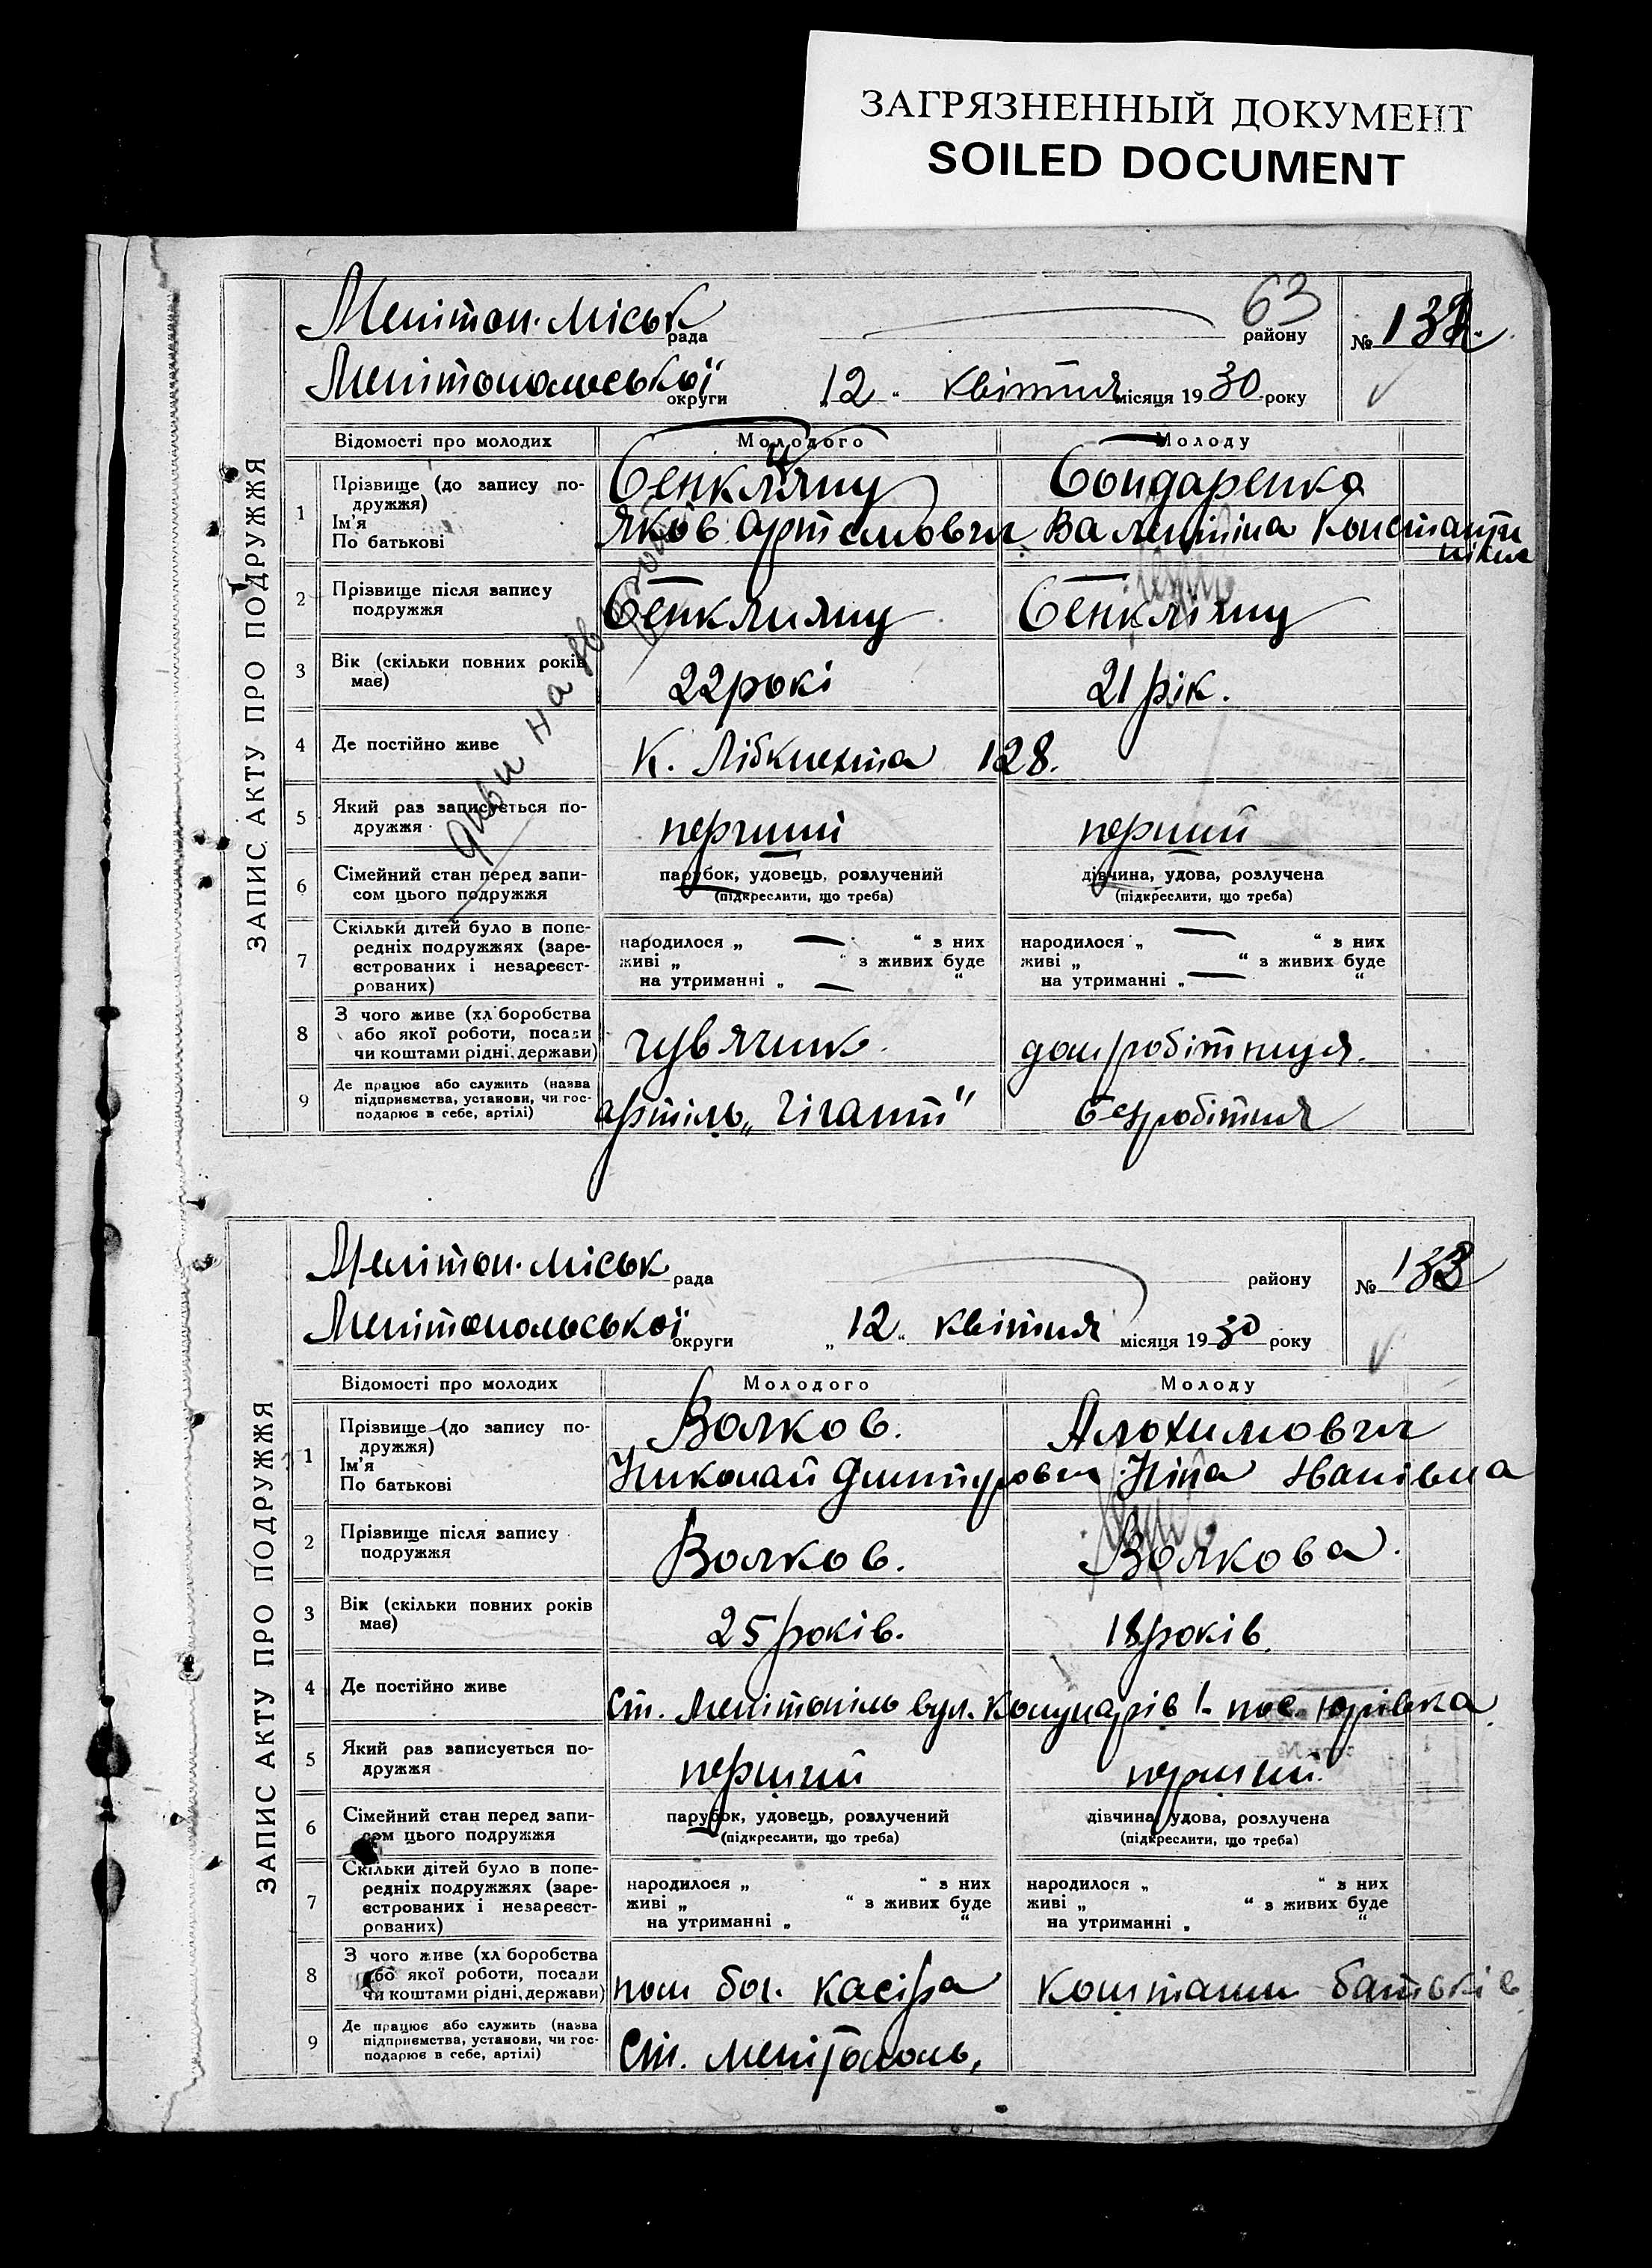 ЗАГРЯЗНЕННЫЙ ДОКУМЕНТ
SOILED DOCUMENT
63
ЗАПИС АКТУ ПРО ПОДРУЖЖЯ
Мелітоп. міськ рада району № 132
Мелітопольської округи „12“ квітня місяця 1930 року
Відомості про молодих Молодого Молоду
1 Прізвище (до запису по-
дружжя)
Ім'я
По батькові
Бенкляну Бондаренко
Яков Артемович Валентіна Константи
нівна
2 Прізвище після запису
подружжя
Бенклияну Бенкліяну
3 Вік (скільки повних років
має)
22 рокі 21 рік.
4 Де постійно живе
К. Лібкнехта 128.
5 Який раз записується по-
дружжя
перший перший
6 Сімейний стан перед запи-
сом цього подружжя
парубок, удовець, розлучений дівчина, удова, розлучена
(підкреслити, що треба) (підкреслити, що треба)
7 Скільки дітей було в попе-
редніх подружжях (заре-
єстрованих і незареєст-
рованих)
народилося „ — “ з них народилося „ — “ з них
живі „ “ з живих буде живі „ “ з живих буде
на утриманні „ — “ на утриманні „ — “
8 З чого живе (хлiборобства
або якої роботи, посади
чи коштами рідні, держави)
чувячник. домробітниця.
9 Де працює або служить (назва
підприємства, установи, чи гос-
подарює в себе, артілі)
артіль „Гігант“ безробітня
Диви на
ЗАПИС АКТУ ПРО ПОДРУЖЖЯ
Мелітоп. міськ рада району № 133
Мелітопольської округи „12“ квітня місяця 1930 року
Відомості про молодих Молодого Молоду
1 Прізвище (до запису по-
дружжя)
Ім'я
По батькові
Волков. Алохимович
Николай Дмитрович Ніна Іванівна
2 Прізвище після запису
подружжя
Волков. Волкова.
3 Вік (скільки повних років
має)
25 років. 18 років.
4 Де постійно живе
Ст. Мелітопіль вул. Комунарів 1. пос. Юрівка
5 Який раз записується по-
дружжя
перший перший.
6 Сімейний стан перед запи-
сом цього подружжя
парубок, удовець, розлучений дівчина, удова, розлучена
(підкреслити, що треба) (підкреслити, що треба)
7 Скільки дітей було в попе-
редніх подружжях (заре-
єстрованих і незареєст-
рованих)
народилося „ “ з них народилося „ “ з них
живі „ “ з живих буде живі „ “ з живих буде
на утриманні „ “ на утриманні „ “
8 З чого живе (хлiборобства
або якої роботи, посади
чи коштами рідні, держави)
пом бог. касіра коштами батьків
9 Де працює або служить (назва
підприємства, установи, чи гос-
подарює в себе, артілі)
Ст. Мелітополь,